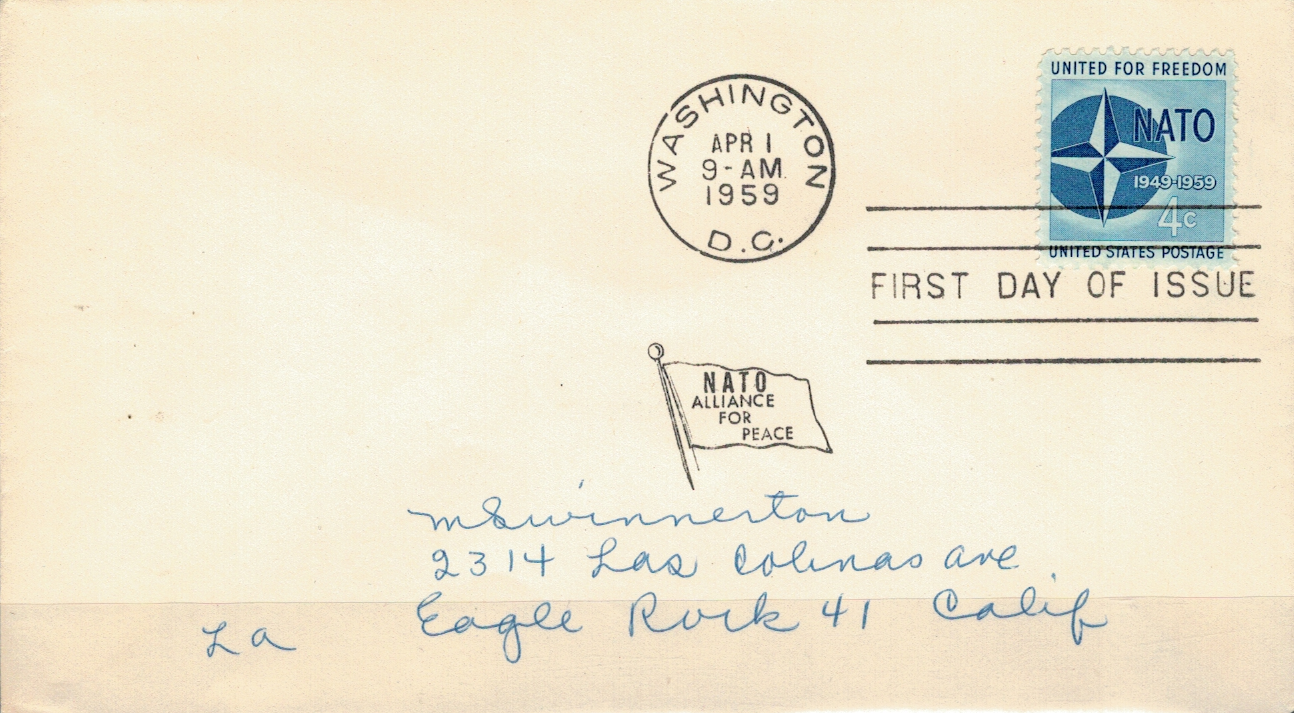 WASHINGTON
APR 1
9-AM
1959
D.C.
UNITED FOR FREEDOM
NATO
1949-1959
4c
UNITED STATES POSTAGE
FIRST DAY OF ISSUE
NATO
ALLIANCE
FOR
PEACE
M Swinnerton
2314 Las Colinas ave
Eagle Rock 41 Calif
La